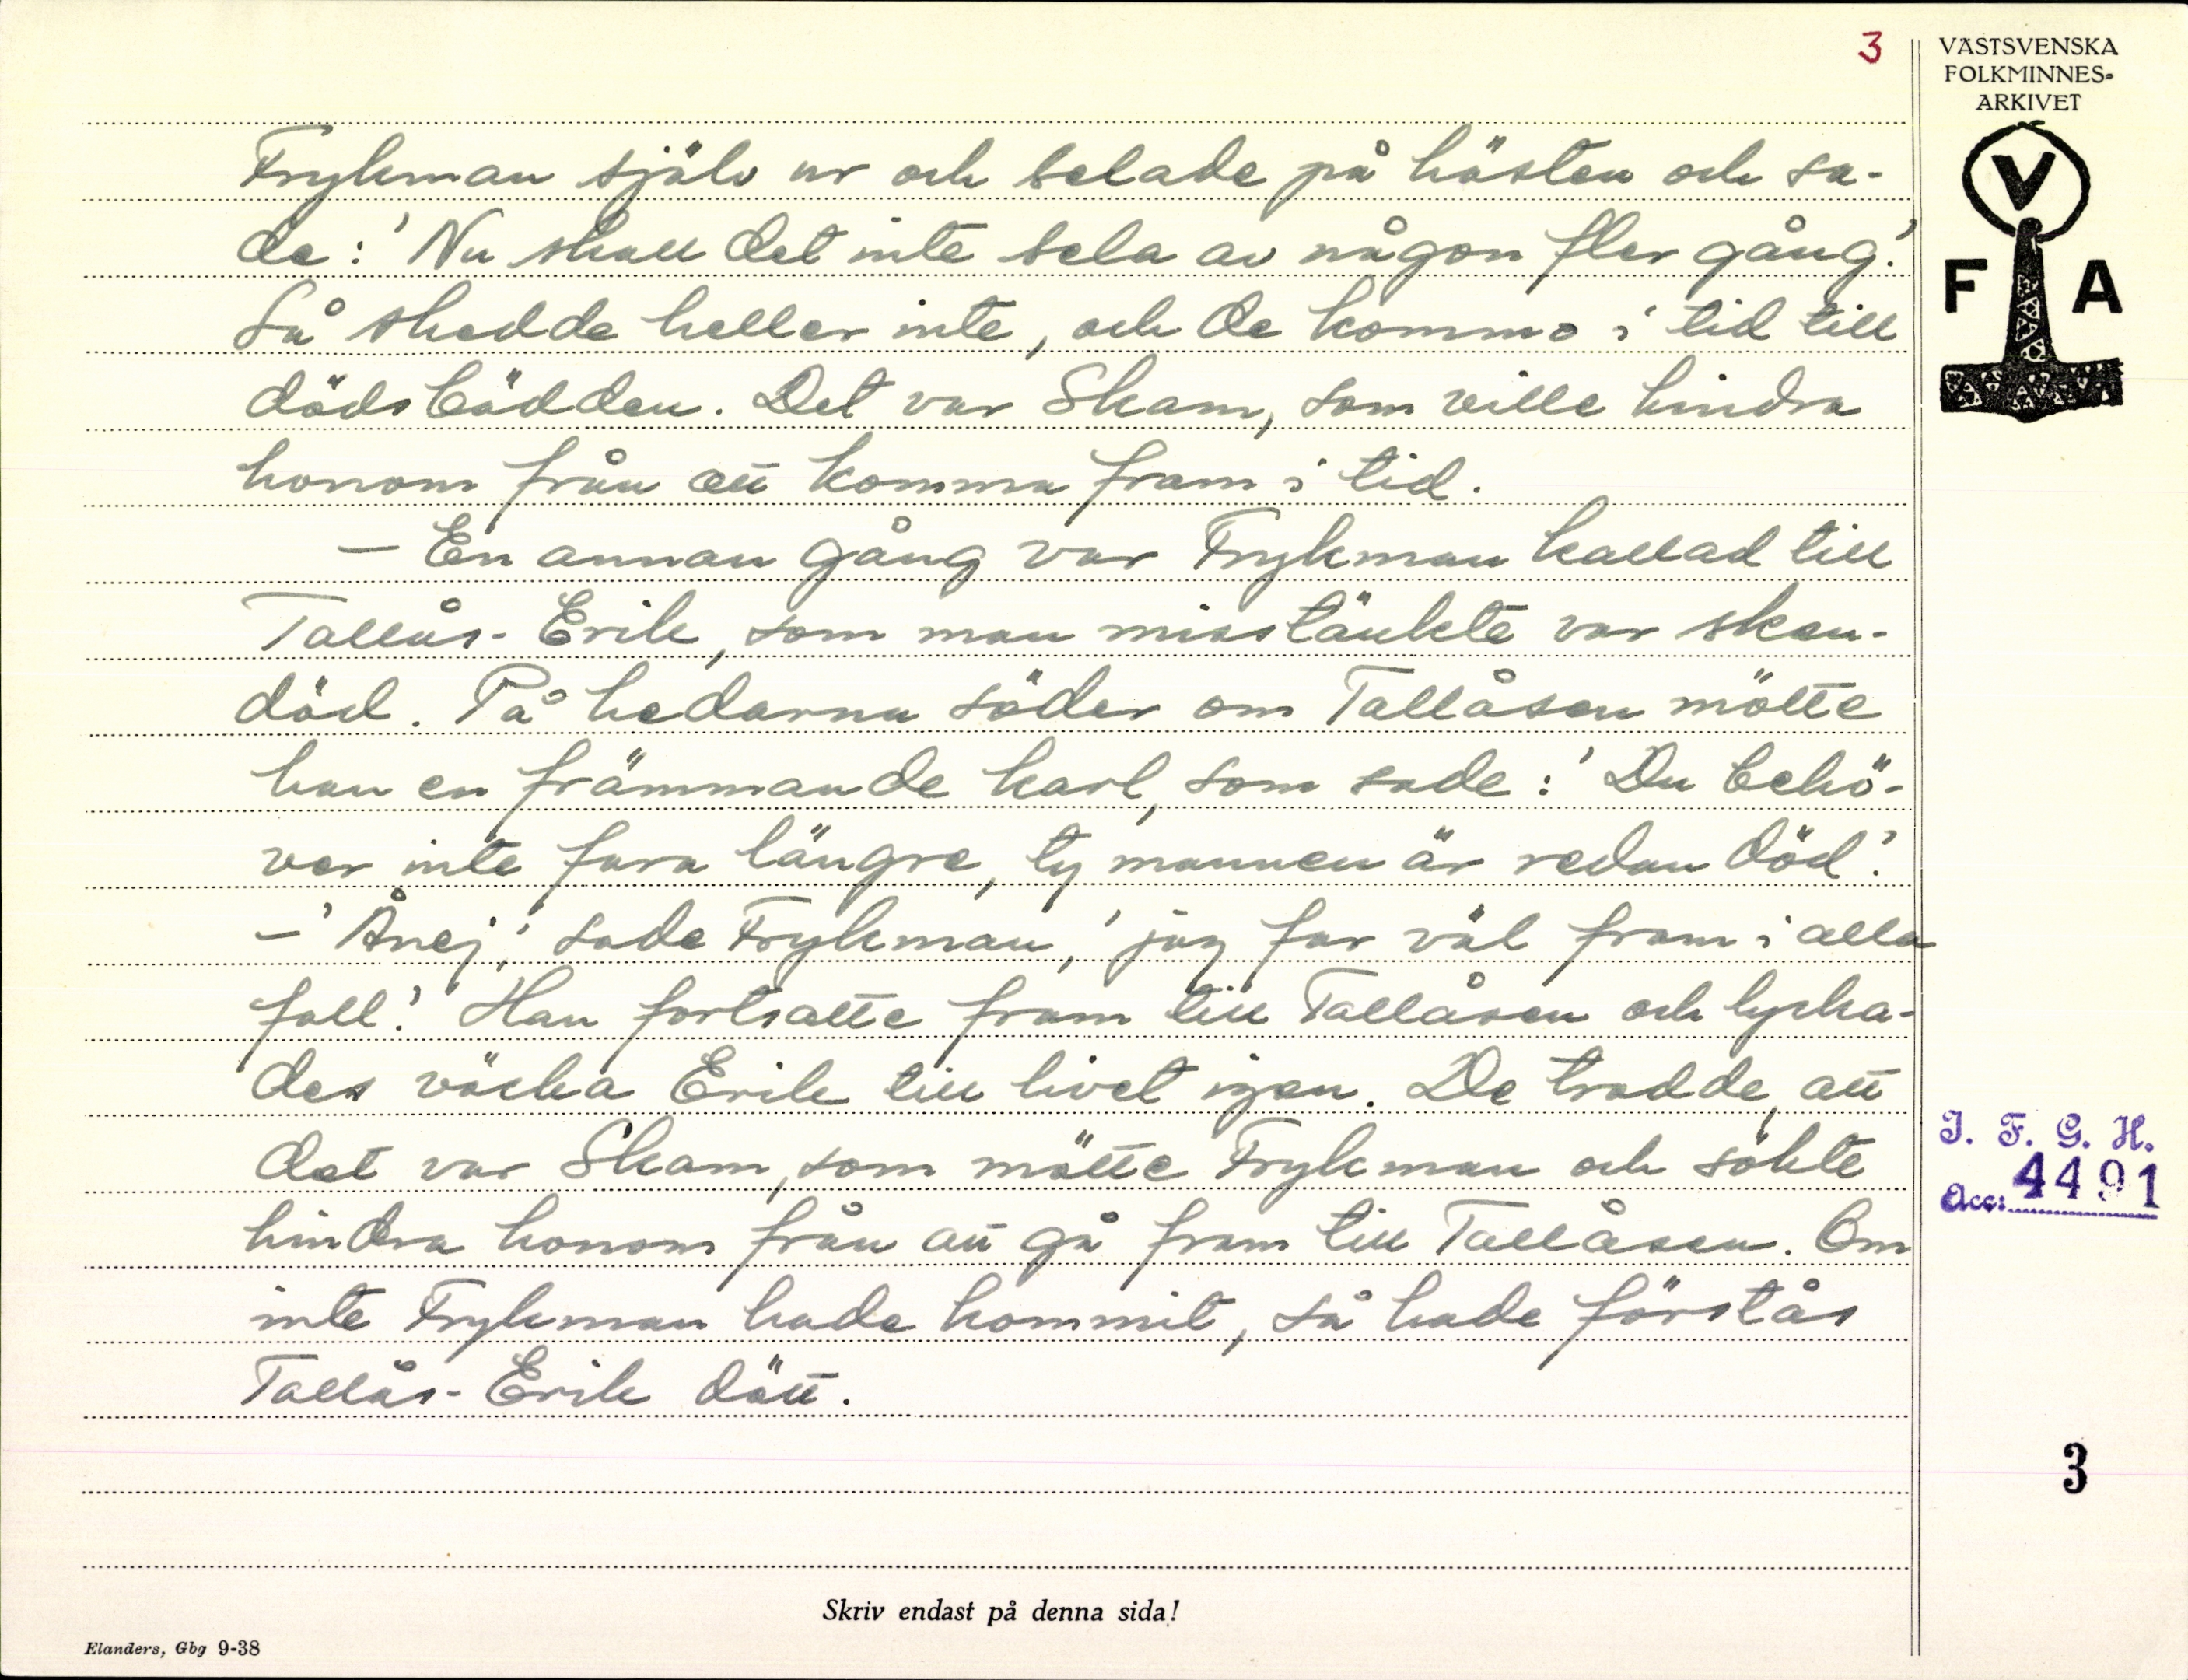 3
VÄSTSVENSKA
FOLKMINNES-
ARKIVET
V
F A
Frykman själv ur och selade på hästen och sa-
de: 'Nu skall det inte sela av någon fler gång.'
Så skedde heller inte, och de kommo i tid till
dödsbädden. Det var Skam, som ville hindra
honom från att komma fram i tid.
— En annan gång var Frykman kallad till
Tallås-Erik, som man misstänkte var sken-
död. På hedarna söder om Tallåsen mötte
han en främmande karl, som sade: 'Du behö-
ver inte fara längre, ty mannen är redan död.'
— 'Ånej,' sade Frykman, 'jag far väl fram i alla
fall.' Han fortsatte fram till Tallåsen och lycka-
des väcka Erik till livet igen. De trodde, att
det var Skam, som mötte Frykman och sökte
hindra honom från att gå fram till Tallåsen. Om
inte Frykman hade kommit, så hade förstås
Tallås-Erik dött.
I. F. G. H.
Acc: 4491
3
Skriv endast på denna sida!
Elanders, Gbg 9-38